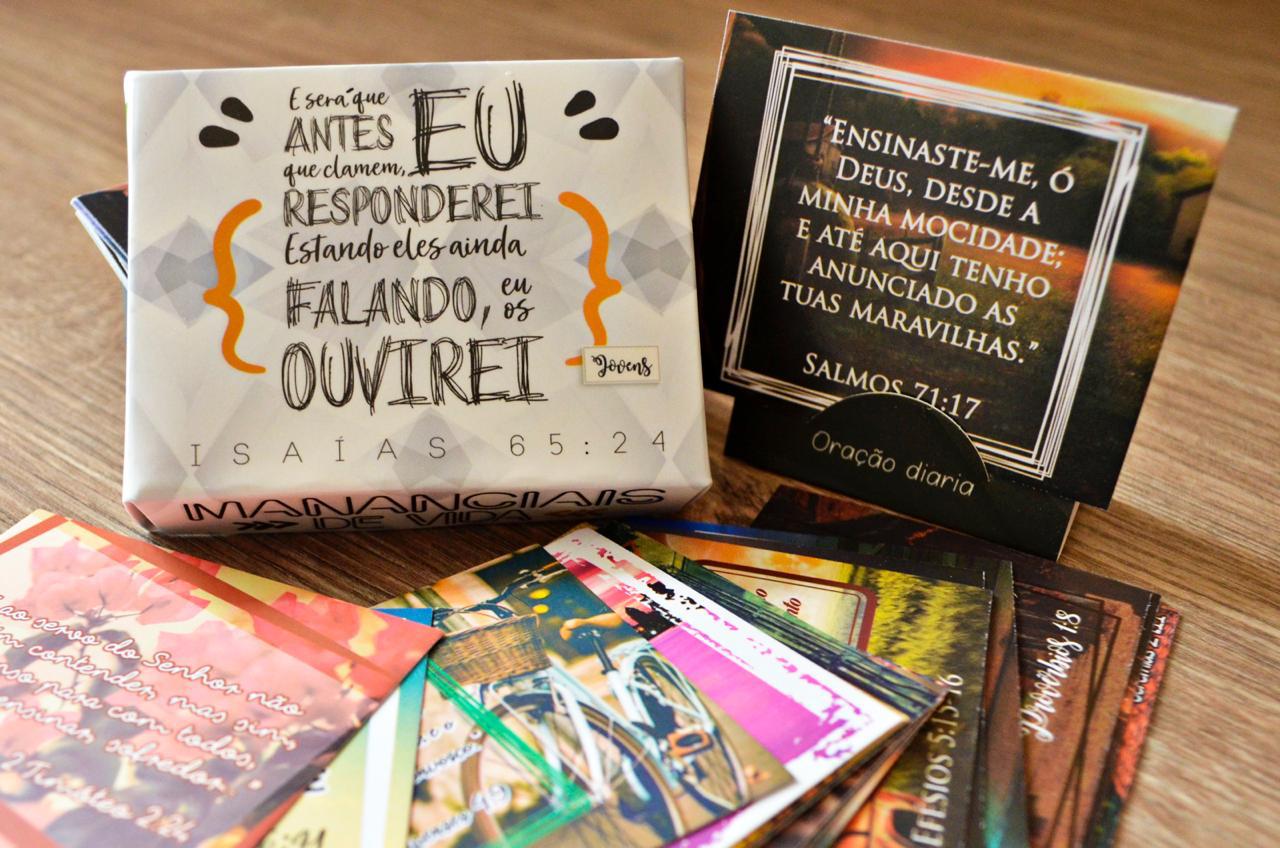 E será que
ANTES EU
que clamem,
RESPONDEREI
Estando eles ainda
FALANDO, eu
os
OUVIREI
Jovens
ISAÍAS 65:24
MANANCIAIS
>>> DE VIDA
"ENSINASTE-ME, Ó
DEUS, DESDE A
MINHA MOCIDADE;
E ATÉ AQUI TENHO
ANUNCIADO AS
TUAS MARAVILHAS."
SALMOS 71:17
Oração diaria
ao servo do Senhor não
contender, mas sim,
para com todos,
ensinar, sofredor."
2 Timóteo 2:24
EFÉSIOS 5:15-16
Provérbios 1:8